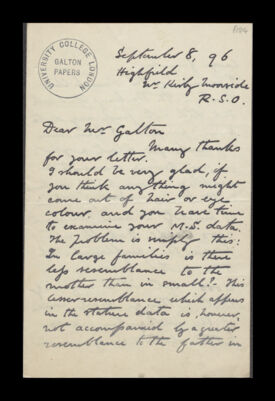 1104
UNIVERSITY COLLEGE LONDON
GALTON
PAPERS
September 8, 96
Highfield
Nr. Kirby Moorside
R.S.O.
Dear Mr Galton
Many thanks
for your letter.
I should be very glad, if
you think anything might
come out of hair or eye
colour, and you have time
to examine your M.S. data.
The problem is simply this:
In large families is there
less resemblance to the
mother than in small? This
lesser resemblance which appears
in the stature data is, however,
not accompanied by a greater
resemblance to the father in